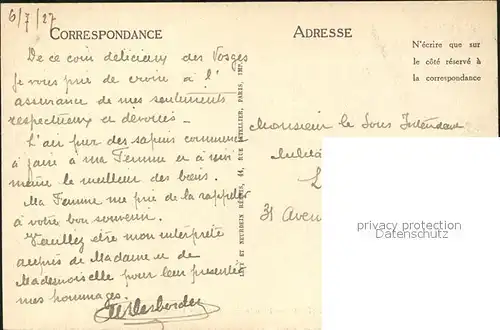 6/7/27
CORRESPONDANCE
De ce coin délicieux des Vosges
je vous prie de croire à l'
assurance de mes sentiments
respectueux et dévoués -
L'air pur des sapins commence
à faire à ma Femme et à moi
même le meilleur des biens.
Ma Femme me prie de la rappeler
à votre bon souvenir.
Veuillez être mon interprète
auprès de Madame et de
Mademoiselle pour leur présenter
mes hommages.
LEVY ET NEURDEIN RÉUNIS, 44, RUE LETELLIER, PARIS, IMP.
ADRESSE
N'écrire que sur
le côté réservé à
la correspondance
Monsieur le Sous Intendant
31 Aven
privacy protection
Datenschutz